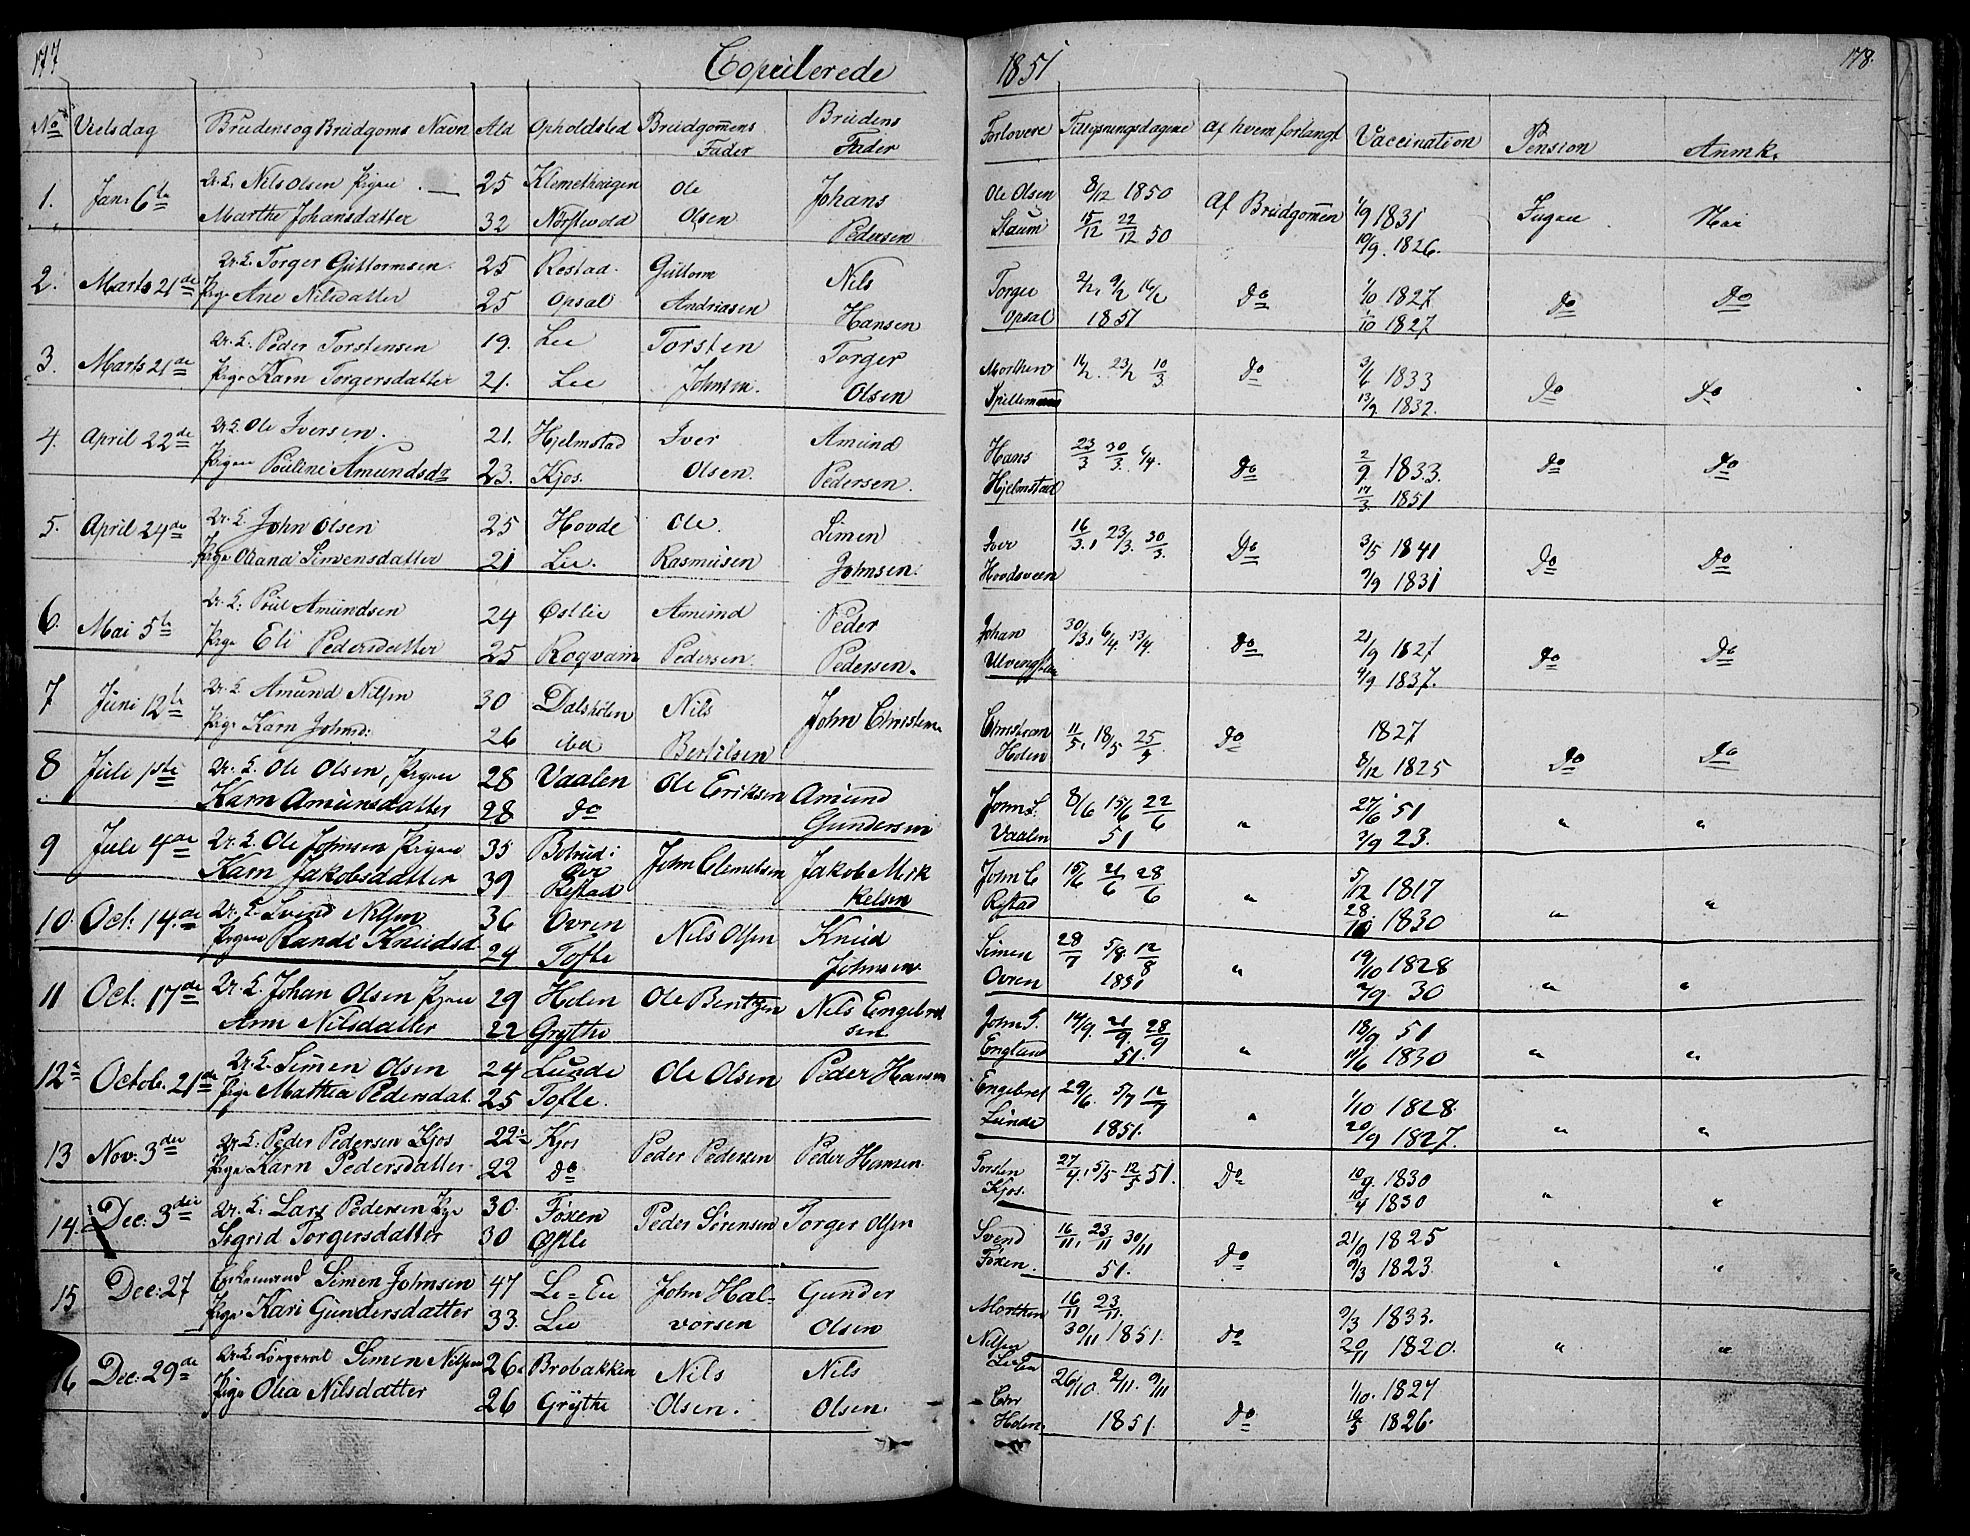 177
Copulerede
No Vielsdag Brudens og Brudgoms Navn Ald Opholdsted Brudgomens Fader Brudens Fader
1. Jan: 6te U. K. Nils Olsen Pigen 25 Ole Johans
Marthe Johansdatter 32 Olsen Pedersen
2. Marts 21de U. K. Torger Guttormsen 25 Rostad Guttorm Nils
Pige Ane Nilsdatter 25 Opsal Andreasen Hansen
3. Marts 21de U. K. Peder Torstensen 19. Lie Torsten Torger
Pige Karn Torgersdatter 21. Lie Johnsen. Olsen
4. April 22de U. K. Ole Iversen. 21. Hjelmstad Iver Amund
Pigen Pouline Amundsdr 23. Kjos. Olsen. Pedersen.
5. April 24de U. K. John Olsen 25 Hovde Ole. Simen
Pige Simensdatter 21 Lie. Rasmusen Johnsen.
6. Mai 5te U. K. Poul Amundsen 24 Østlie Amund Peder
Pige Eli Pedersdatter 25 Roqvam Pedersen. Pedersen.
7 Juni 12te U. K. Amund Nilsen 30 Dalsholen Nils John Christens
Pige Karn Johnsd: 26 ibd Bertelsen
8 Juli 1ste U. K. Ole Olsen, Pigen 28 Vaalen Ole Eriksen Amund
Karn Amunsdatter 28 do Gundersen
9 Juli 4de U. K. Ole Johnsen Pigen 35 John Clemetsen Jakob Mik
Karn Jakobsdatter 39 Restad kelsen
10. Oct: 14.de U. K. Svend Nilsen 36 Ovren Nils Olsen Knud
Pigen Randi Knudsd. 24 Tofte Johnsen
11 Oct: 17de U. K. Johan Olsen Pigen 29 Holen Ole Bentzen Nils Engebret
Ann Nilsdatter 22 Grythe sen
12te Octob. 21de U. K. Simen Olsen 24 Lunde Ole Olsen Peder Hansen
Pige Mathea Pedersdat. 25 Tofte.
13 Nov: 3die U. K: Peder Pedersen Kjos 22 Kjos Peder Pedersen Peder Hansen
Pige Karn Pedersdatter 22 do
14. Dec: 3die U. K: Lars Pedersen Pige 30. Foxen Peder Sørensen Torger Olsen
Sigrid Torgersdatter 30
15 Dec: 27 Enkemand Simen Johnsen 47 Lie-Eie John Hal- Gunder
Pige Kari Gundersdatter 33. Lie vorsen Olsen
16 Dec: 29de U. K. Simen Nilsen 26. Brobakken Nils Nils
Pige Olia Nilsdatter 26 Grythe Olsen. Olsen.
1851
178.
Forlovere Tillysningsdagene Af hvem forlangt Vaccination Pension Anmk.
Ole Olsen 8/12 1850 Af Brudgomen 1831 Ingen Nei
15/12 22/12 50 10/9. 1826.
Torger 2/2, 9/2 16/2 do 1/10 1827 do do
Opsal 1851 1/10 1827
Morthen 16/2. 23/2 10/3 do 3/6 1833 do do
Spellemann 13/9. 1832.
Hans 23/3 30/3. 6/4. do 2/9. 1833. do do
Hjelmstad 17/3 1851
Iver 16/3., 23/3. 30/3. do 3/5 1841 do do
Hovdsveen 9/9 1831
Johan 30/3, 6/4. 13/4. do 21/9 1827 do do
4/9 1837.
Christian 11/5, 18/5 25/5 do 1827
Holen 8/12 1825 do do
John S. 8/6 15/6 22/6 " 27/6 51 " "
Vaalen 51 3/9 23.
John C 15/6 21/6 28/6 " 5/12 1817 " "
Restad 28/10 1830
Simen 28/7 5/8. 12/8 " 19/10 1828 " "
Ovren 1851 2/9 30
John S. 14/9. 21/9. 28/9 " 18/9 51 " "
England 51. 1830
Engebret 29/6. 5/7 12/7 " 1/10 1828. " "
Lunde 1851. 20/9 1827.
Torsten 27/4, 5/5 12/5 51. do 10/9. 1830 " "
Kjos. 10/4 1830
Svend 16/11, 23/11 30/11 do 21/9 1825 " "
Foxen. 51. 9/3 1823
Morthen 16/11 23/11. do 9/3 1833. " "
Nilsen 30/11 1851. 20/11 1820.
Lie Eie
Chr 26/10. 2/11. 9/11 do 1/10. 1827
Holen. 1851. 1826.